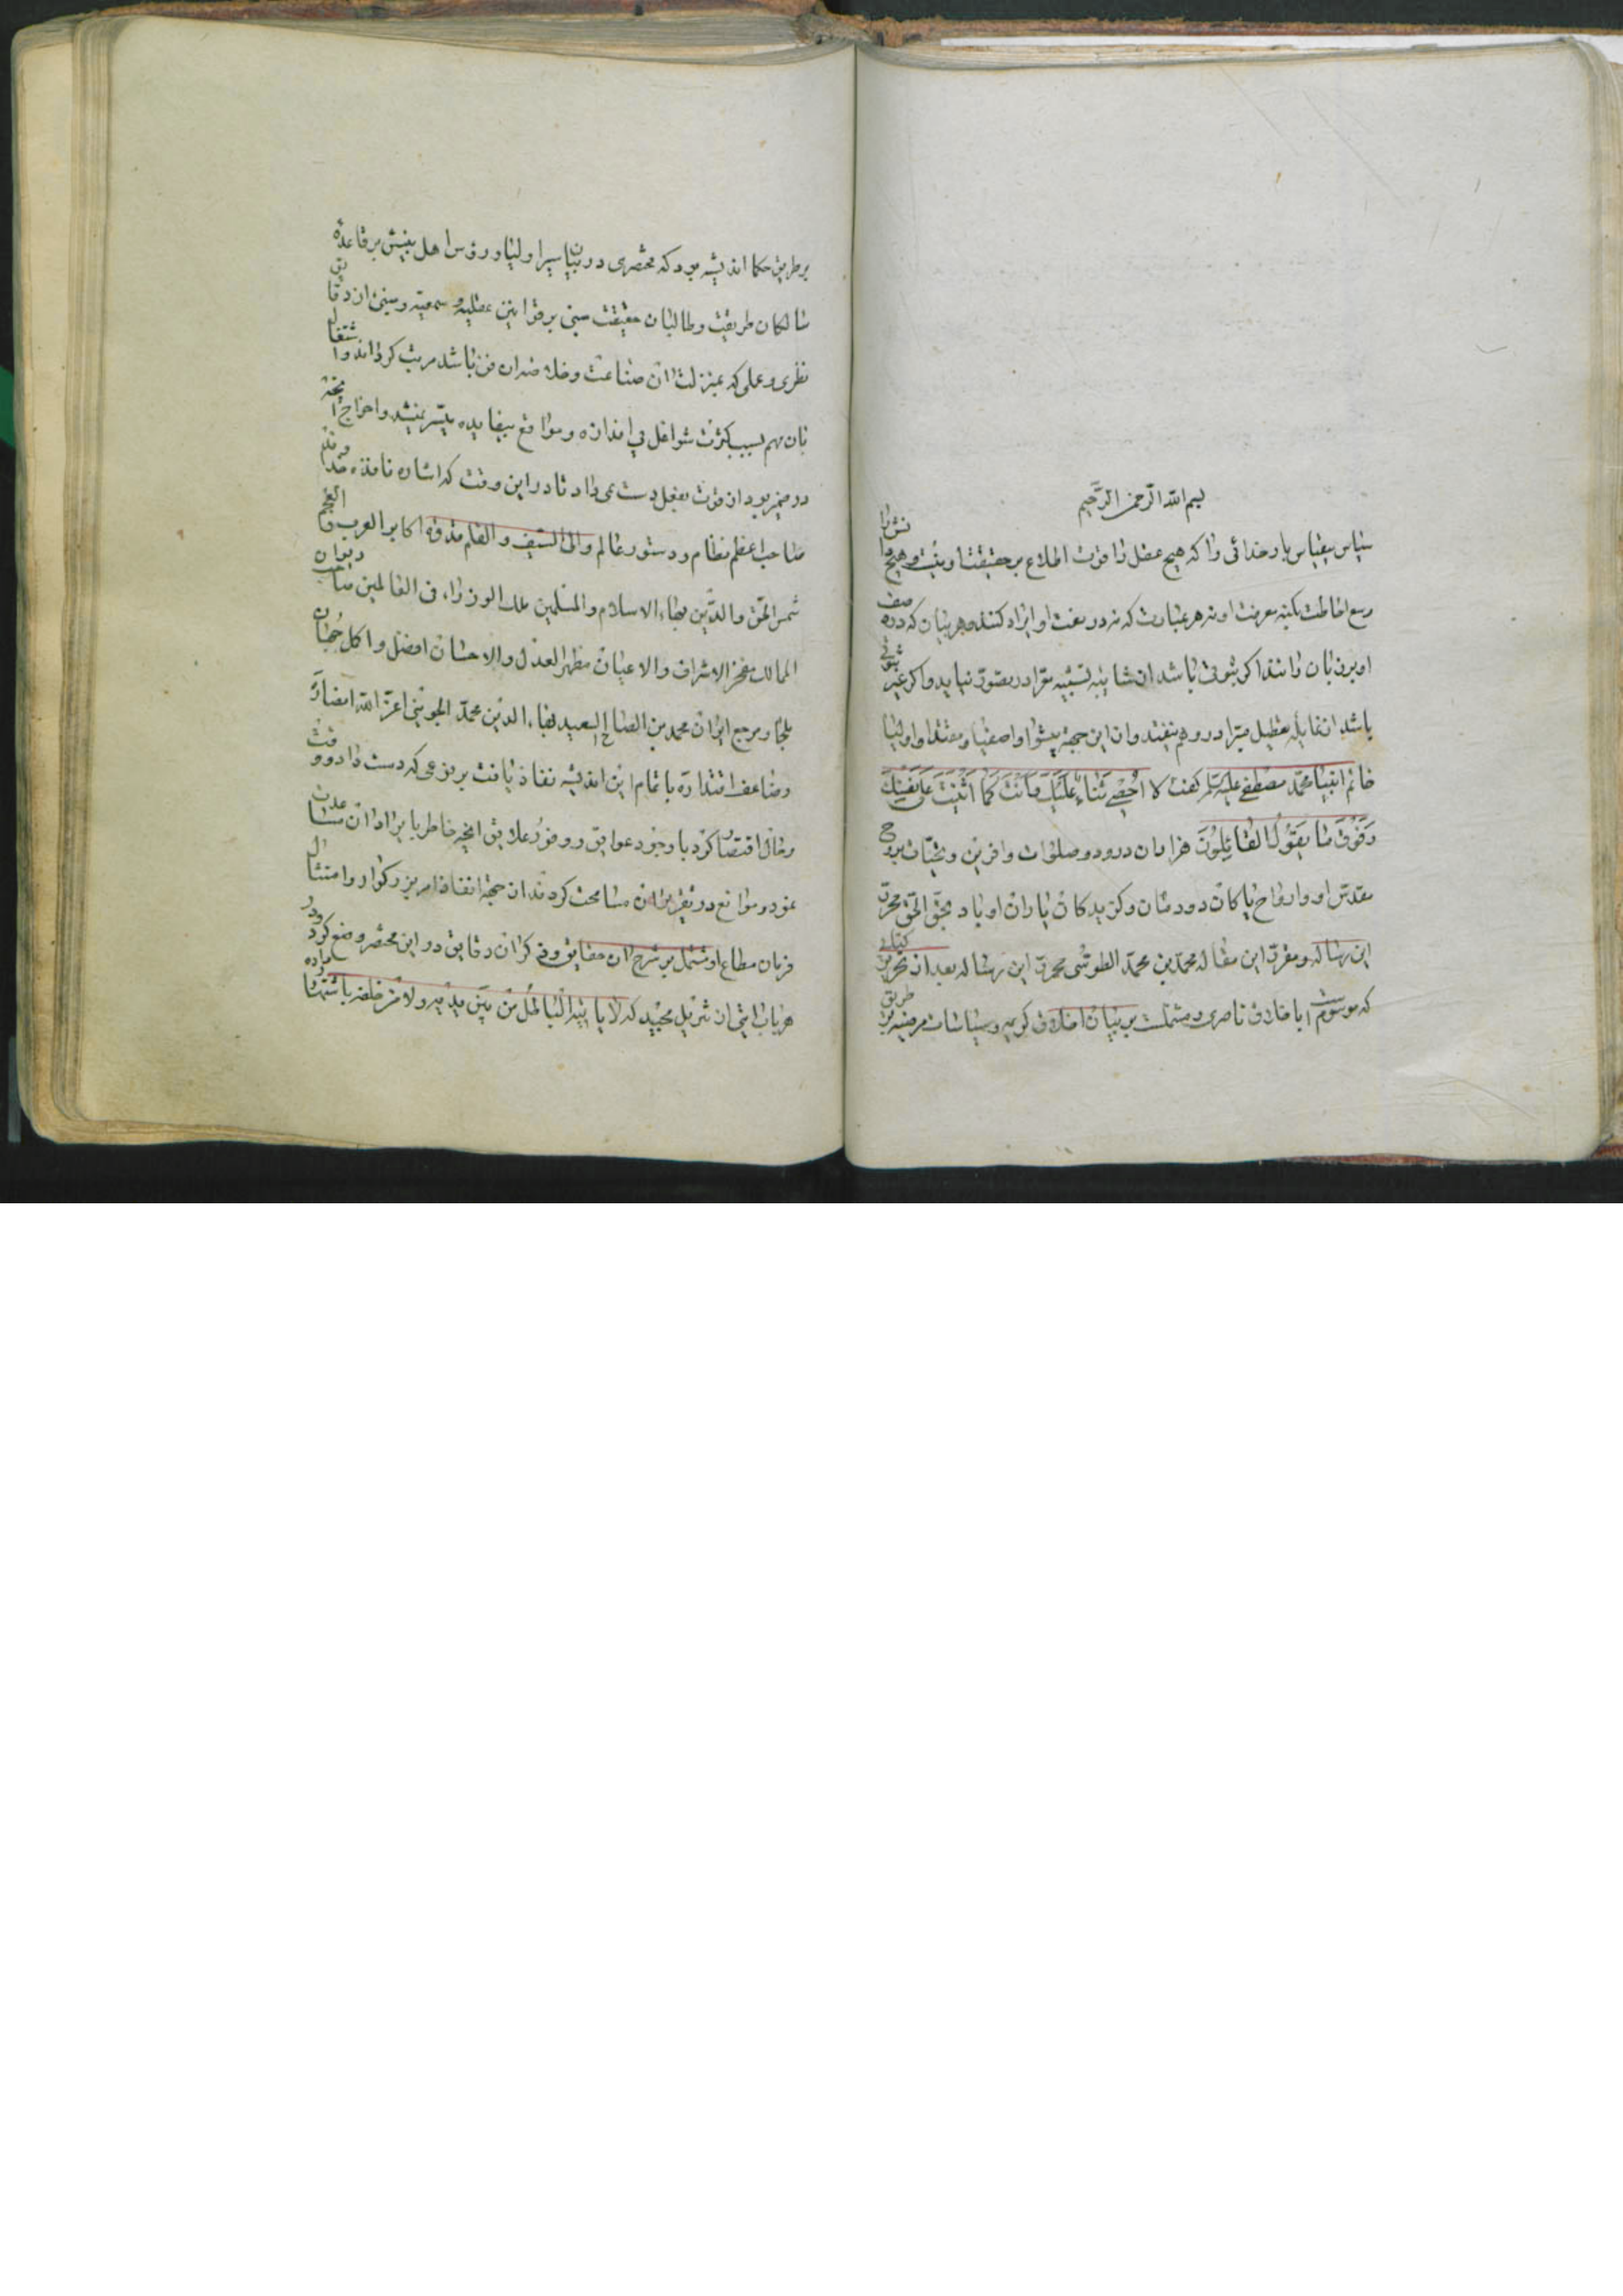 بسم الله الرحمن الرحیم
سپاس بیقیاس بار خدائی را که هیچ عقل را قوت اطلاع بر حقیقت او نیست و هیچ دانش را
وسع احاطت بکنه معرفت او نه هر عبارت که در نعت او ایراد کنند و هر بیان که در وصف
او بر زبان رانند اگر ثبوتی باشد از شایبه تشبیه معرا در تصور نیاید و اگر غیر ثبوتی
باشد از غایله تعطیل مبرا در وهم نیفتد و از این جهة پیشوا و اصفیا و مقتدا و اولیا
خاتم انبیا محمد مصطفی علیه گفت لا احصی ثناء علیک انت کما اثنیت علی نفسک
وفوق ما یقول القائلون هزاران درود و صلوات و آفرین و تحیات بروح
مقدس او و ارواح پاکان دودمان و گزیدگان یاران او باد بحق الحق محرر
این رساله و مقرر این مقاله محمد بن محمد الطوسی محرر این رساله بعد از تحریر کتابی
که موسوم است باخلاق ناصری و مشتملست بر بیان اخلاق کریمه و سیاسات مرضیه بر طریق
بر طریق حکما اندیشه بود که مختصری در بیان سیر اولیا و روش اهل بینش بر قاعده
سالکان طریقت و طالبان حقیقت مبنی بر قوانین عقلیه و سمعیه و مبنی از دقایق
نظری و عملی که بمنزلت آن صناعت و خلاصه آن فن باشد مرتب گرداند و اشتغال
بان مهم بسبب کثرت شواغل بی اندازه و موانع بیفایده میسر نمیشد و اخراج آنچه
در ضمیر بود از قوت بفعل دست نمی داد تا در این وقت که اشاره نافذه مخدوم
صاحب اعظم نظام و دستور عالم والی السیف و القلم قدوه اکابر العرب و العجم
شمس الحق و الدین بهاء الاسلام و المسلمین ملک الوزراء فی العالمین صاحب دیوان
الممالک مفخر الاشراف و الاعیان مظهر العدل و الاحسان افضل و اکمل جهان
ملجأ و مرجع ایران محمد بن الصاحب السعید بهاء الدین محمد الجوینی اعز الله انصاره
وضاعف اقتداره باتمام این اندیشه نفاذ یافت بر نوعی که دست داد و وقت
و حال اقتضا کرد با وجود عوایق و وفور علایق آنچه خاطر بایراد آن مساعدت
نمود و موانع در تقریر آن مسامحت کردند از جهة انفاذ امر بزرگوار و امتثال
فرمان مطاع او مشتمل بر شرح آن حقایق و ذکر آن دقایق در این مختصر وضع کرد و در
هر باب آیتی از تنزیل مجید که لا یأتیه الباطل من بین یدیه ولا من خلفه باستشهاد